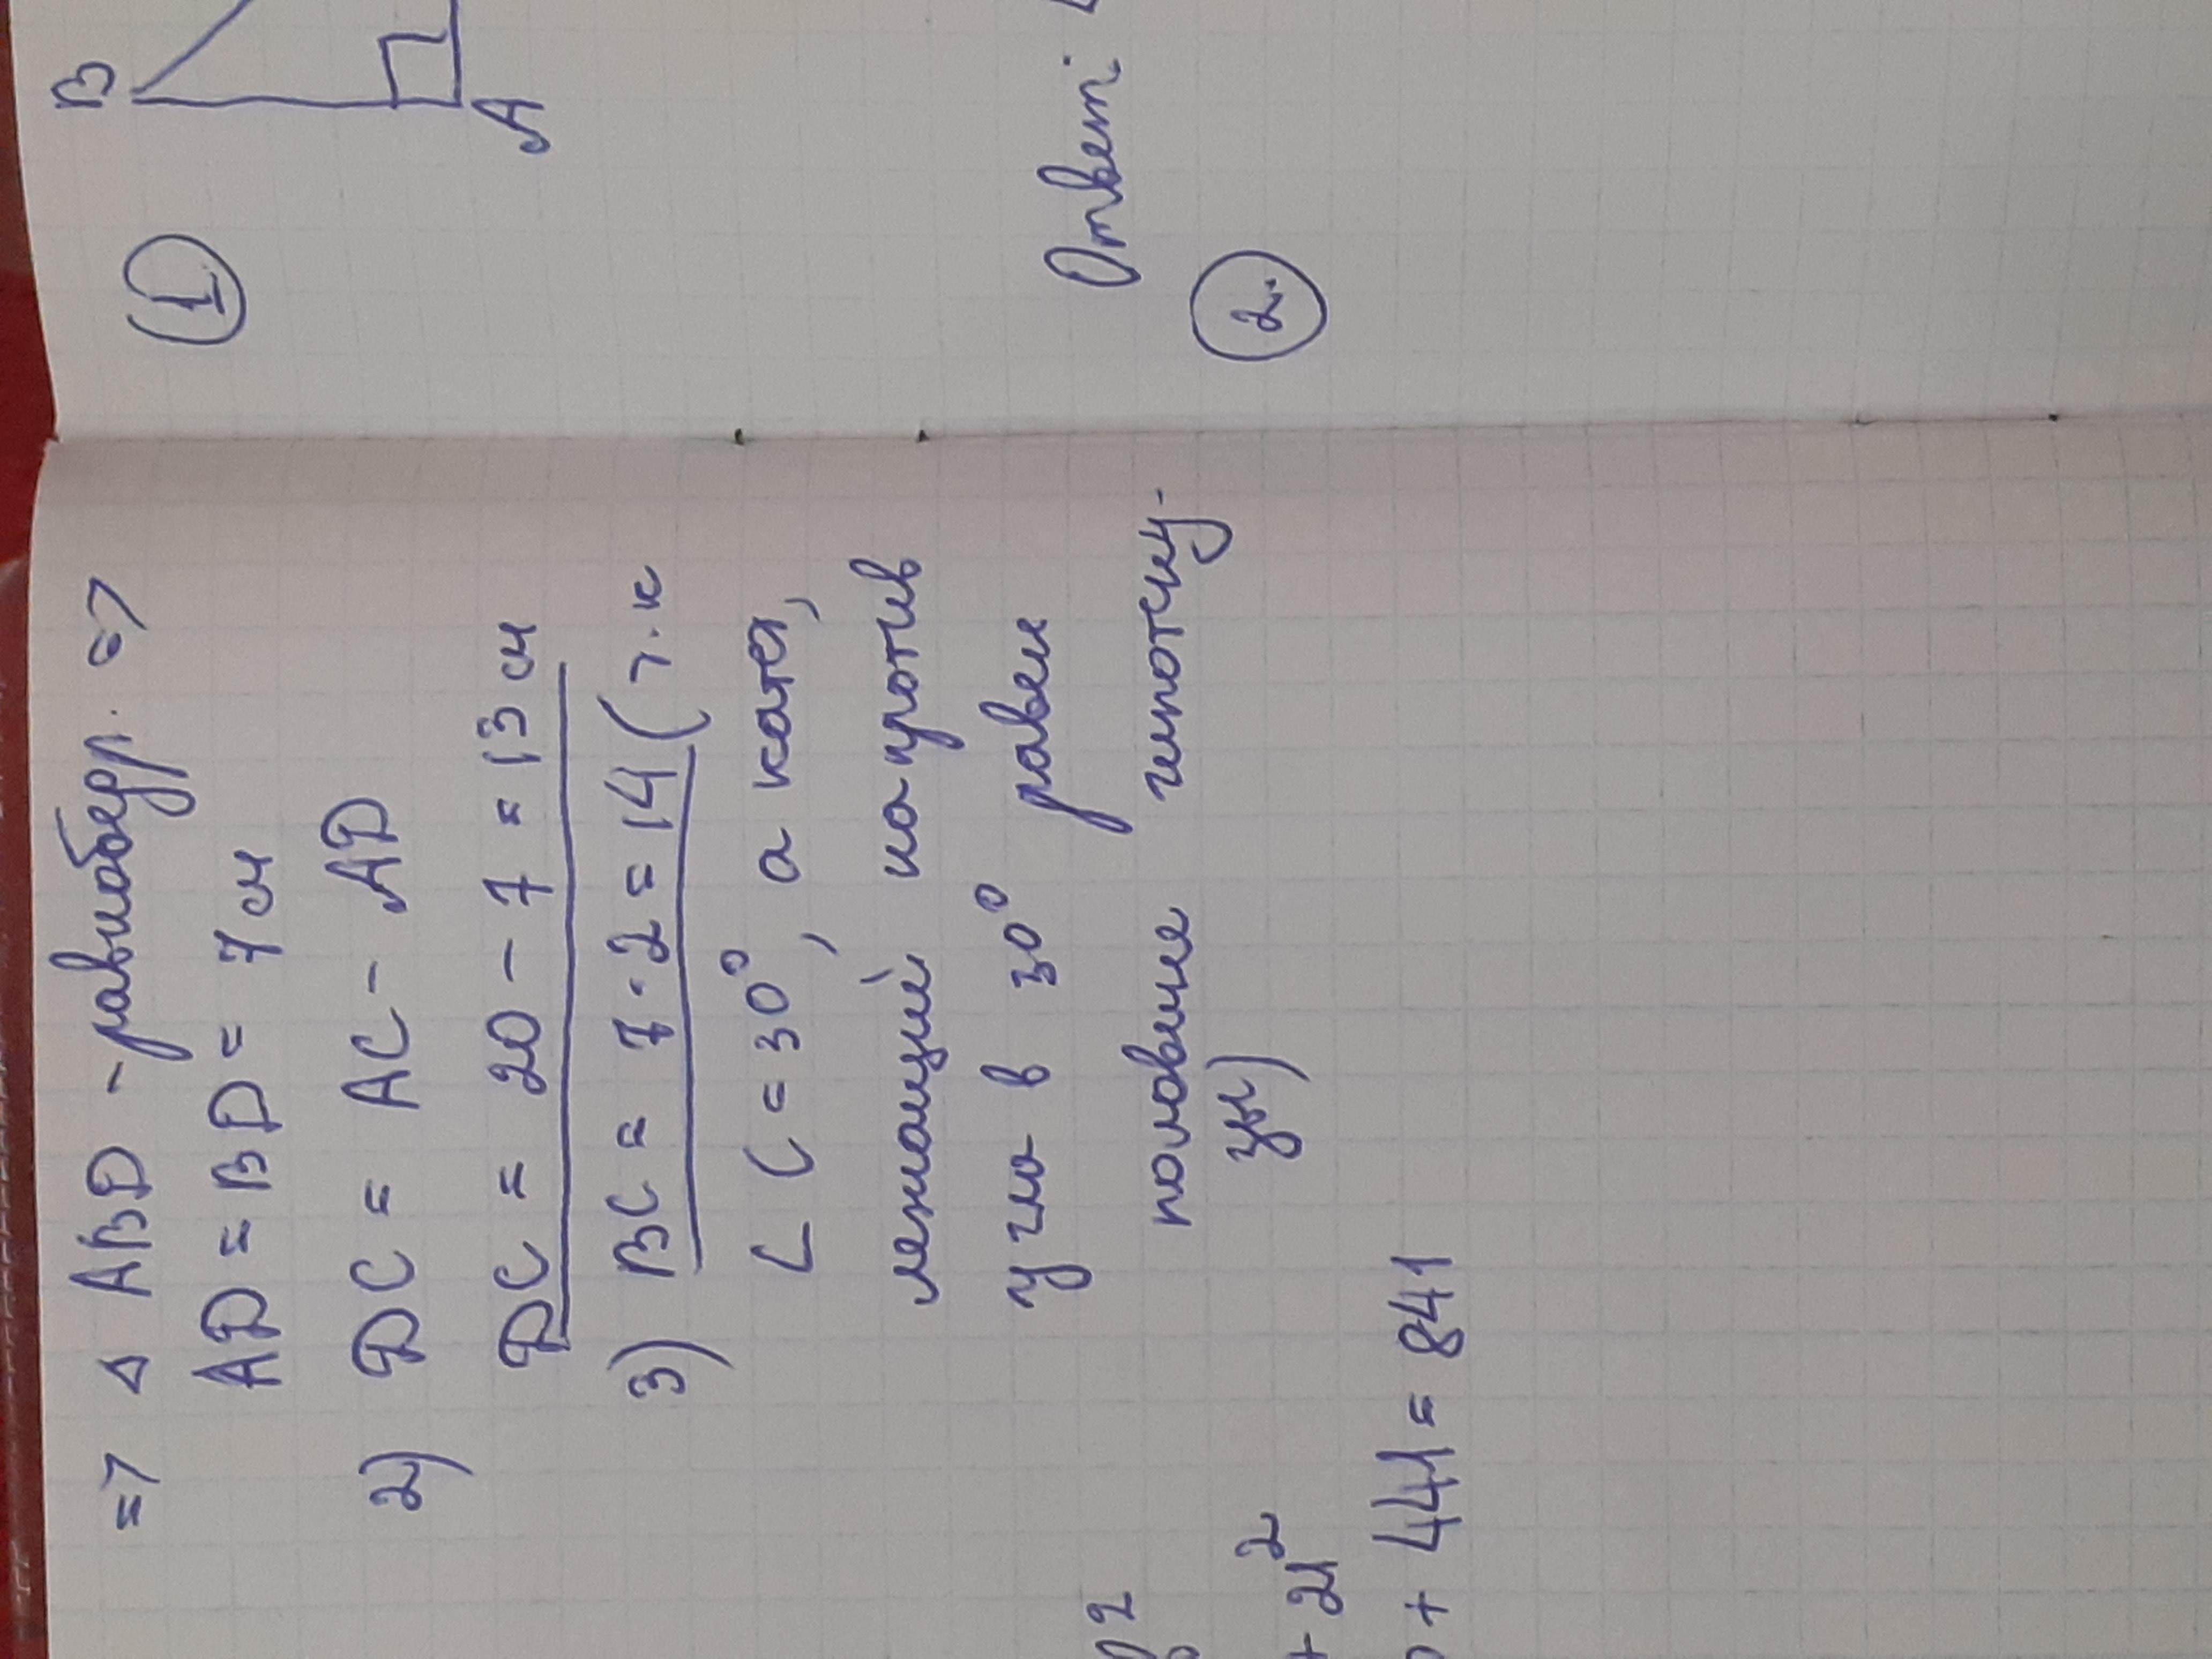 => △ ABD - равнобедр. =>
AD = BD = 7 см
2) DC = AC - AD
DC = 20 - 7 = 13 см
3) BC = 7 · 2 = 14 (т.к
∠ C = 30°, а катет,
лежащий напротив
угла в 30° равен
половине гипотену-
зы)
+ 21²
+ 441 = 841
1
B
A
Ответ:
2.